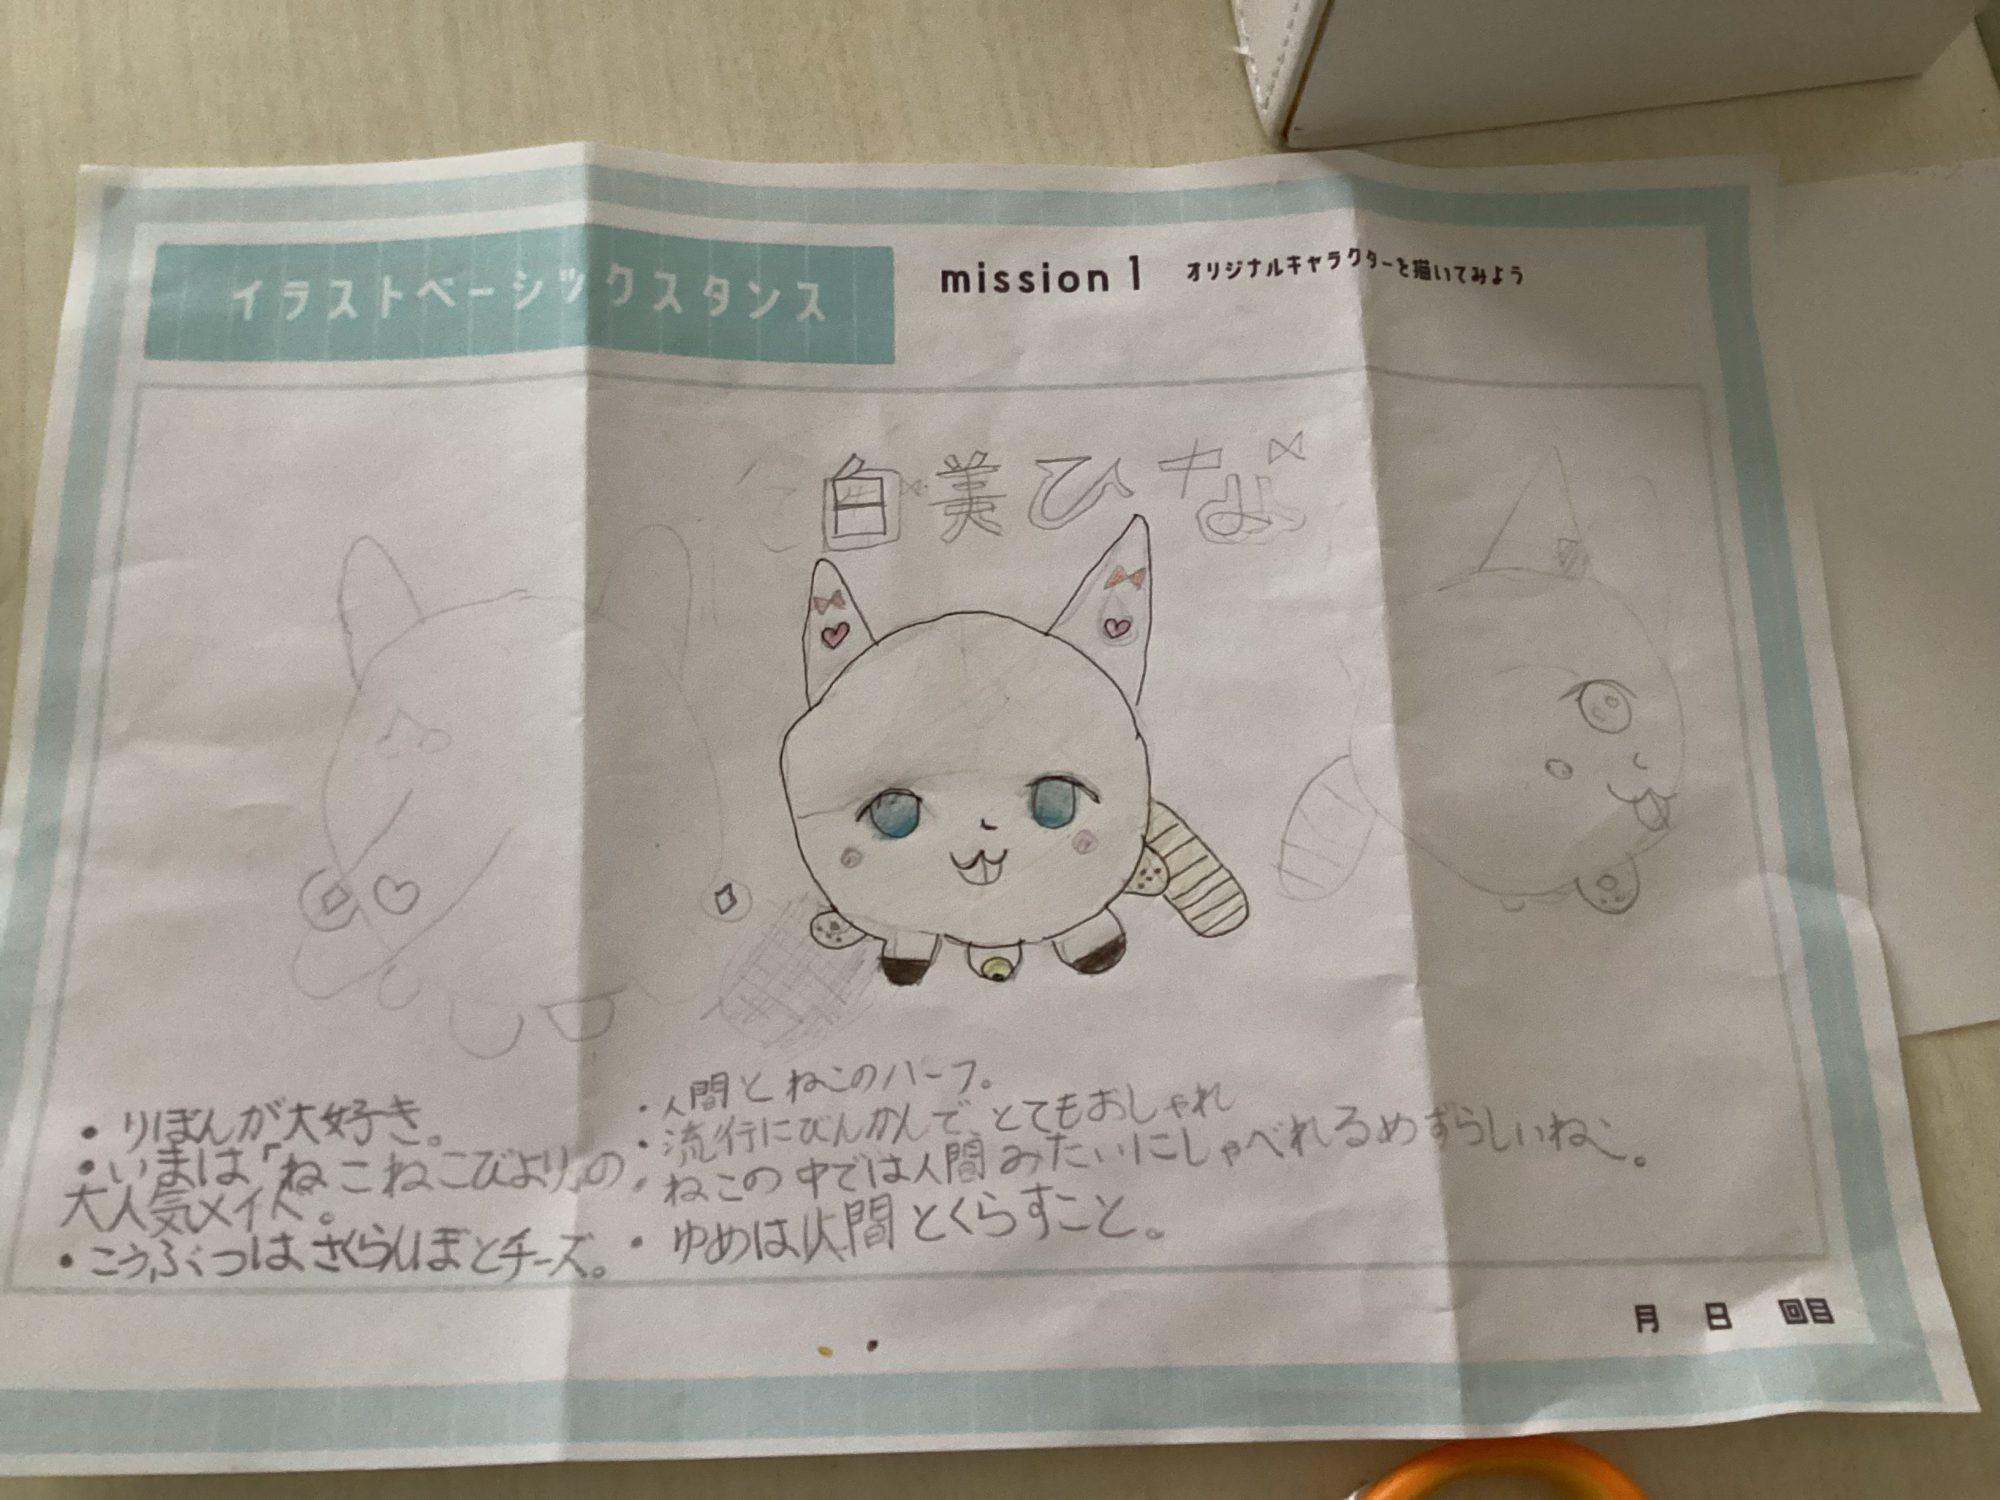 イラストベーシックスタンス
mission 1 オリジナルキャラクターを描いてみよう
白美ひな
・りぼんが大好き。
・いまは「ねこねこびより」の
大人気メイド。
・こうぶつはさくらんぼとチーズ。
・人間とねこのハーフ。
・流行にびんかんで、とてもおしゃれ
・ねこの中では人間みたいにしゃべれるめずらしいねこ。
・ゆめは人間とくらすこと。
月 日 回目